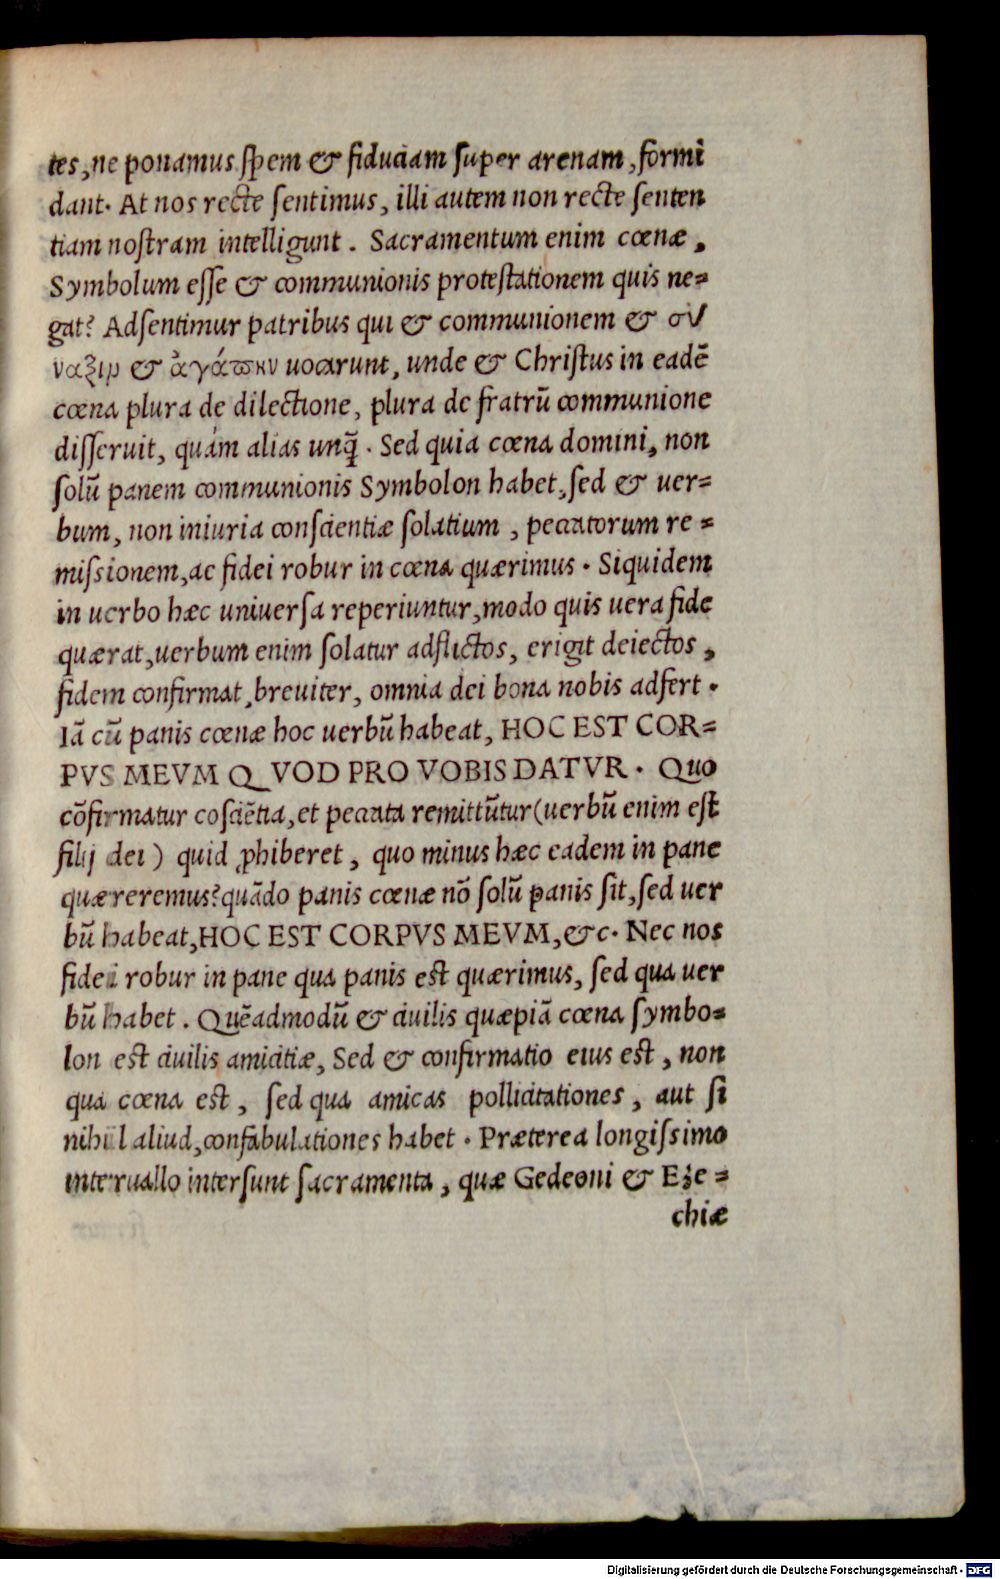 tes, ne ponamus spem & fiduciam super arenam, formi
dant. At nos recte sentimus, illi autem non recte senten
tiam nostram intelligunt. Sacramentum enim cœnæ,
Symbolum esse & communionis protestationem quis ne=
gat? Adsentimur patribus qui & communionem & συ
ναξιμ & ἀγάπην uocarunt, unde & Christus in eadē
cœna plura de dilectione, plura de fratrū communione
disseruit, quám alias unq̃. Sed quia cœna domini, non
solū panem communionis Symbolon habet, sed & uer=
bum, non iniuria conscientiæ solatium, peccatorum re=
missionem, ac fidei robur in cœna quærimus. Siquidem
in uerbo hæc uniuersa reperiuntur, modo quis uera fide
quærat, uerbum enim solatur adflictos, erigit deiectos,
fidem confirmat, breuiter, omnia dei bona nobis adfert.
Iā cū panis cœnæ hoc uerbū habeat, HOC EST COR=
PVS MEVM QVOD PRO VOBIS DATVR. Quo
cōfirmatur cosciētia, et peccata remittūtur (uerbū enim est
filij dei) quid ꝓhiberet, quo minus hæc eadem in pane
quæreremus? quādo panis cœnæ nō solū panis sit, sed uer
bū habeat, HOC EST CORPVS MEVM, &c. Nec nos
fidei robur in pane qua panis est quærimus, sed qua uer
bū habet. Quēadmodū & ciuilis quæpiā cœna symbo=
lon est ciuilis amicitiæ, Sed & confirmatio eius est, non
qua cœna est, sed qua amicas pollicitationes, aut si
nihil aliud, confabulationes habet. Præterea longissimo
interuallo intersunt sacramenta, quæ Gedeoni & Eze=
chiæ
Digitalisierung gefördert durch die Deutsche Forschungsgemeinschaft - DFG